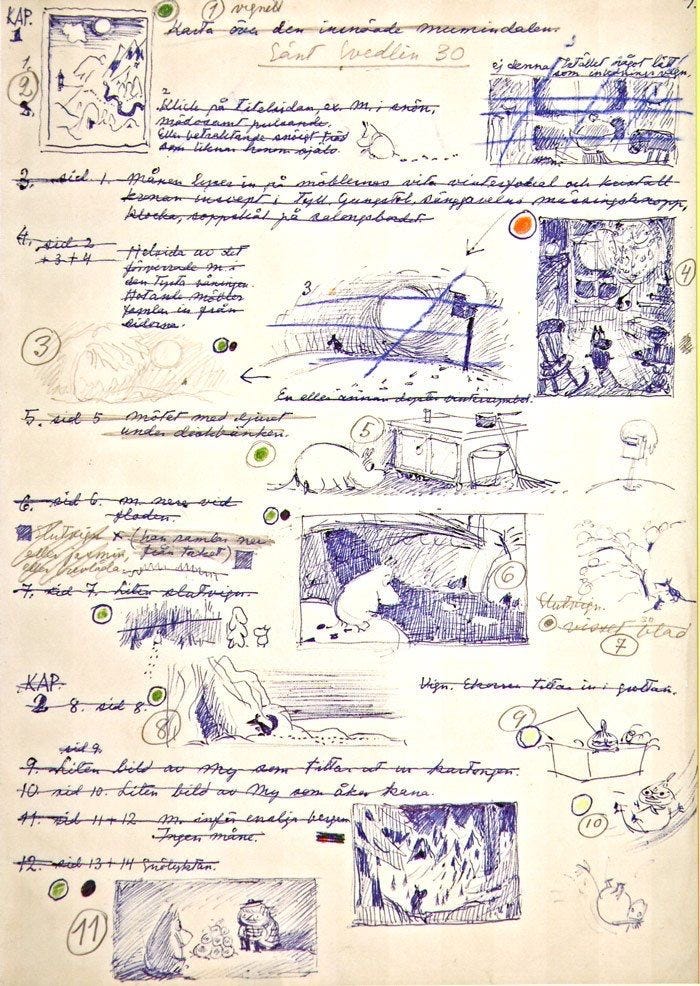 KAP. 1
① vignett
Karta över den insnöade mumindalen.
Sänt Svedlin 30
1.
②
2.
2
Blick på titelsidan, ex. M. i snön,
mödosamt pulsande.
Eller betraktande snöigt träd
som liknar honom själv.
ej denna
något
som
3. sid 1. Månen lyser in på möblernas vita vinterfodral och kristall
kronan insvept i tyll. Gungstol, sänggavelns mässingsknopp,
klocka, soppskål på salongsbordet.
4. sid 2
+ 3 + 4
Helsida av det
M. i
den tysta våningen.
Hotande möbler
in från
sidorna.
3
④
③
En eller annan vintersymbol.
5. sid 5 Mötet med djuret
under diskbänken.
⑤
6. sid 6. M. nere vid
floden.
Slutvign x (han samlas ner
från taket)
eller jasmin,
eller
⑥
7. sid 7. Liten slutvign.
Slutvign.
30
visset blad
⑦
KAP.
2 8. sid 8.
8
Vign. Ekorren tittar in i grottan.
⑨
sid 9.
9. Liten bild av My som tittar ut ur kartongen.
10 sid 10. Liten bild av My som åker kana.
⑩
11. sid 11 + 12 M. inför ensliga bergen
Ingen måne.
12. sid 13 + 14 Snölyktan.
⑪